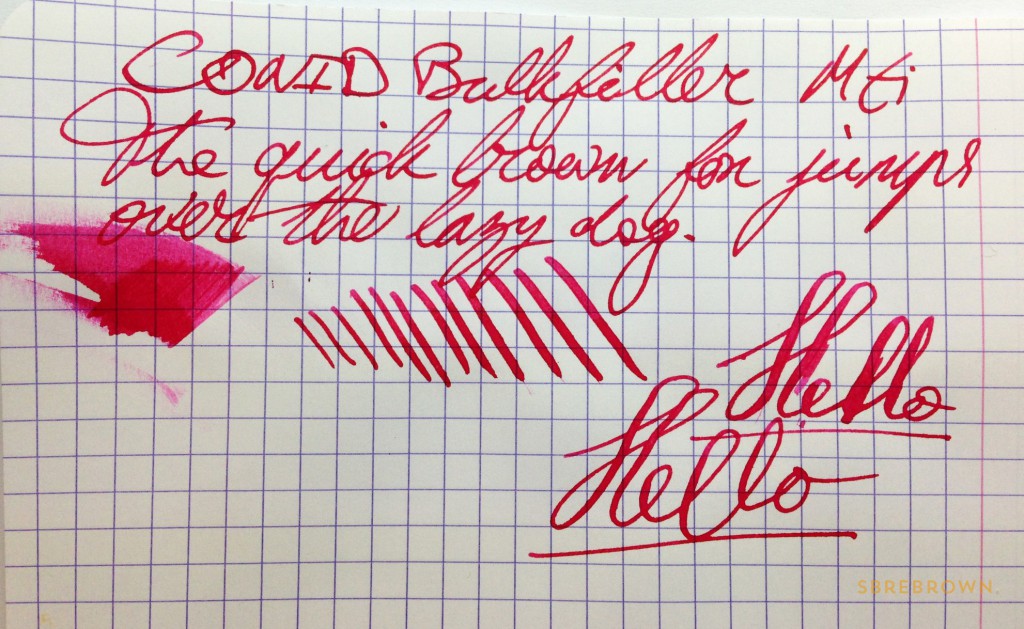 CONID Bulkfiller Mti
The quick brown fox jumps
over the lazy dog.
Hello
Hello
SBREBROWN.